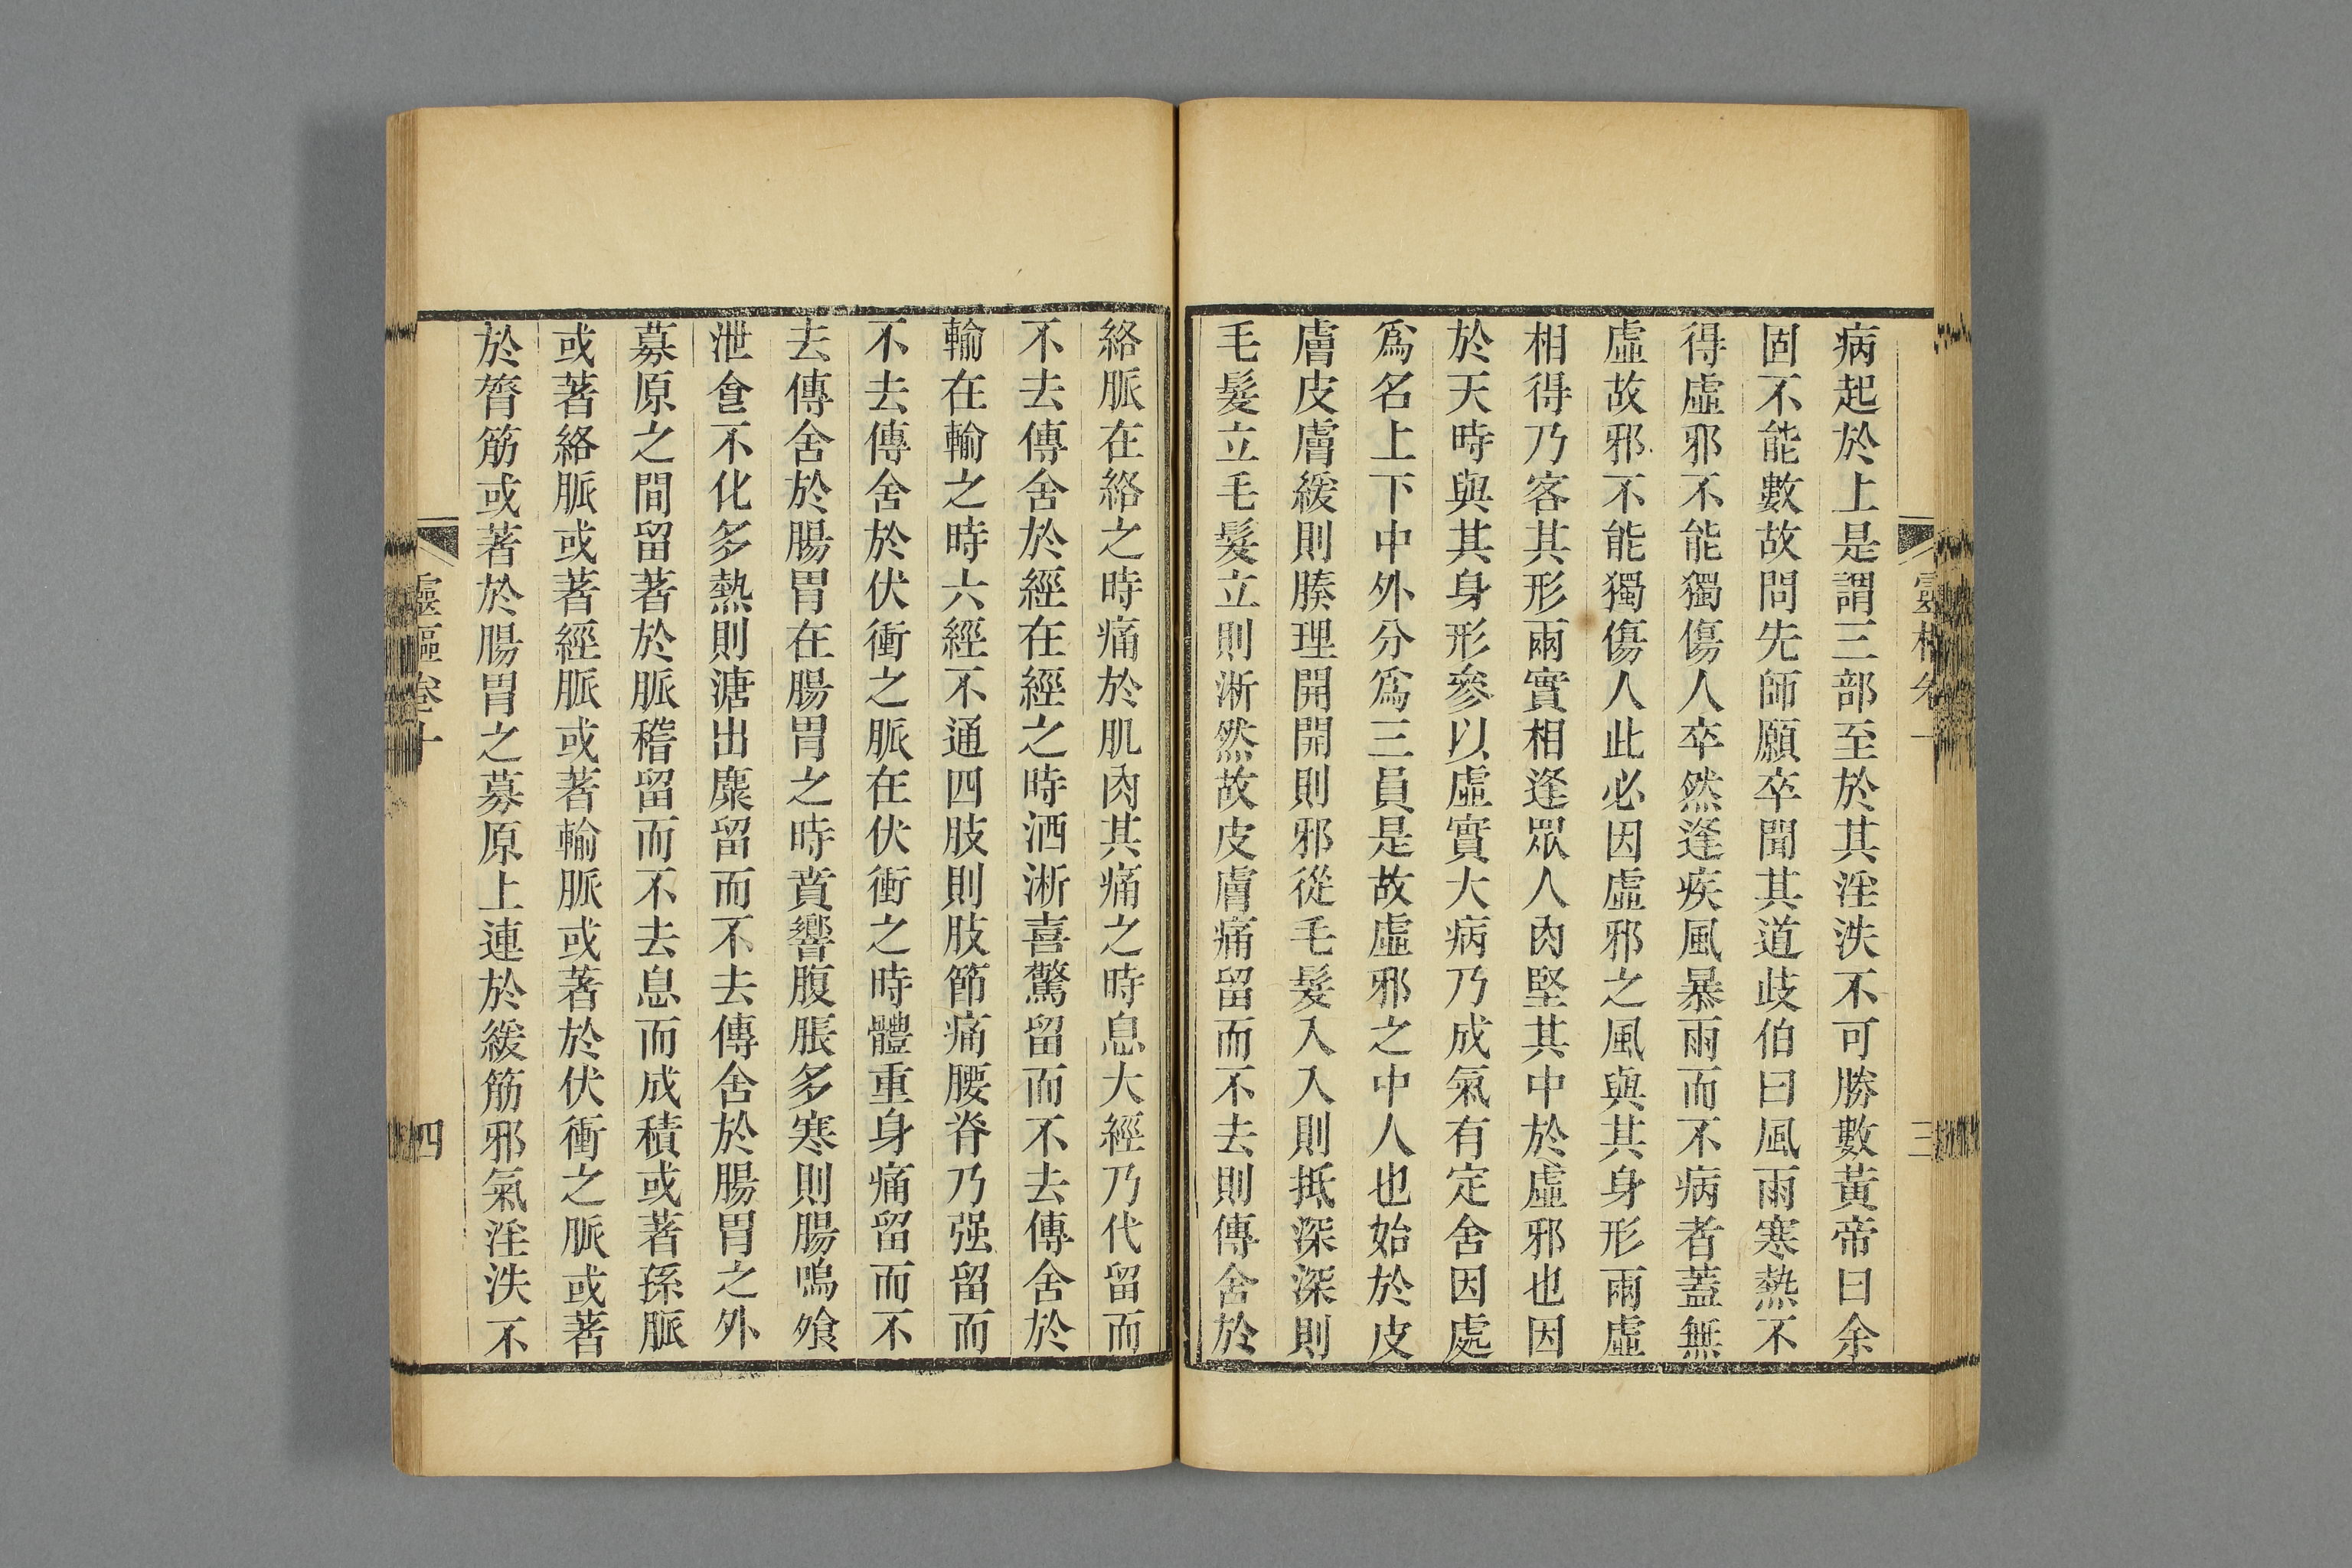 病起於上是謂三部至於其淫泆不可勝數黃帝曰余
固不能數故問先師願卒聞其道歧伯曰風雨寒熱不
得虛邪不能獨傷人卒然逢疾風暴雨而不病者蓋無
虛故邪不能獨傷人此必因虛邪之風與其身形兩虛
相得乃客其形兩實相逢眾人肉堅其中於虛邪也因
於天時與其身形參以虛實大病乃成氣有定舍因處
爲名上下中外分爲三員是故虛邪之中人也始於皮
膚皮膚緩則腠理開開則邪從毛髮入入則抵深深則
毛髮立毛髮立則淅然故皮膚痛留而不去則傳舍於
絡脈在絡之時痛於肌肉其痛之時息大經乃代留而
不去傳舍於經在經之時洒淅喜驚留而不去傳舍於
輸在輸之時六經不通四肢則肢節痛腰脊乃强留而
不去傳舍於伏衝之脈在伏衝之時體重身痛留而不
去傳舍於腸胃在腸胃之時賁響腹脹多寒則腸鳴飧
泄食不化多熱則溏出麋留而不去傳舍於腸胃之外
募原之間留著於脈稽留而不去息而成積或著孫脈
或著絡脈或著經脈或著輸脈或著於伏衝之脈或著
於膂筋或著於腸胃之募原上連於緩筋邪氣淫泆不
靈樞卷十
四
三